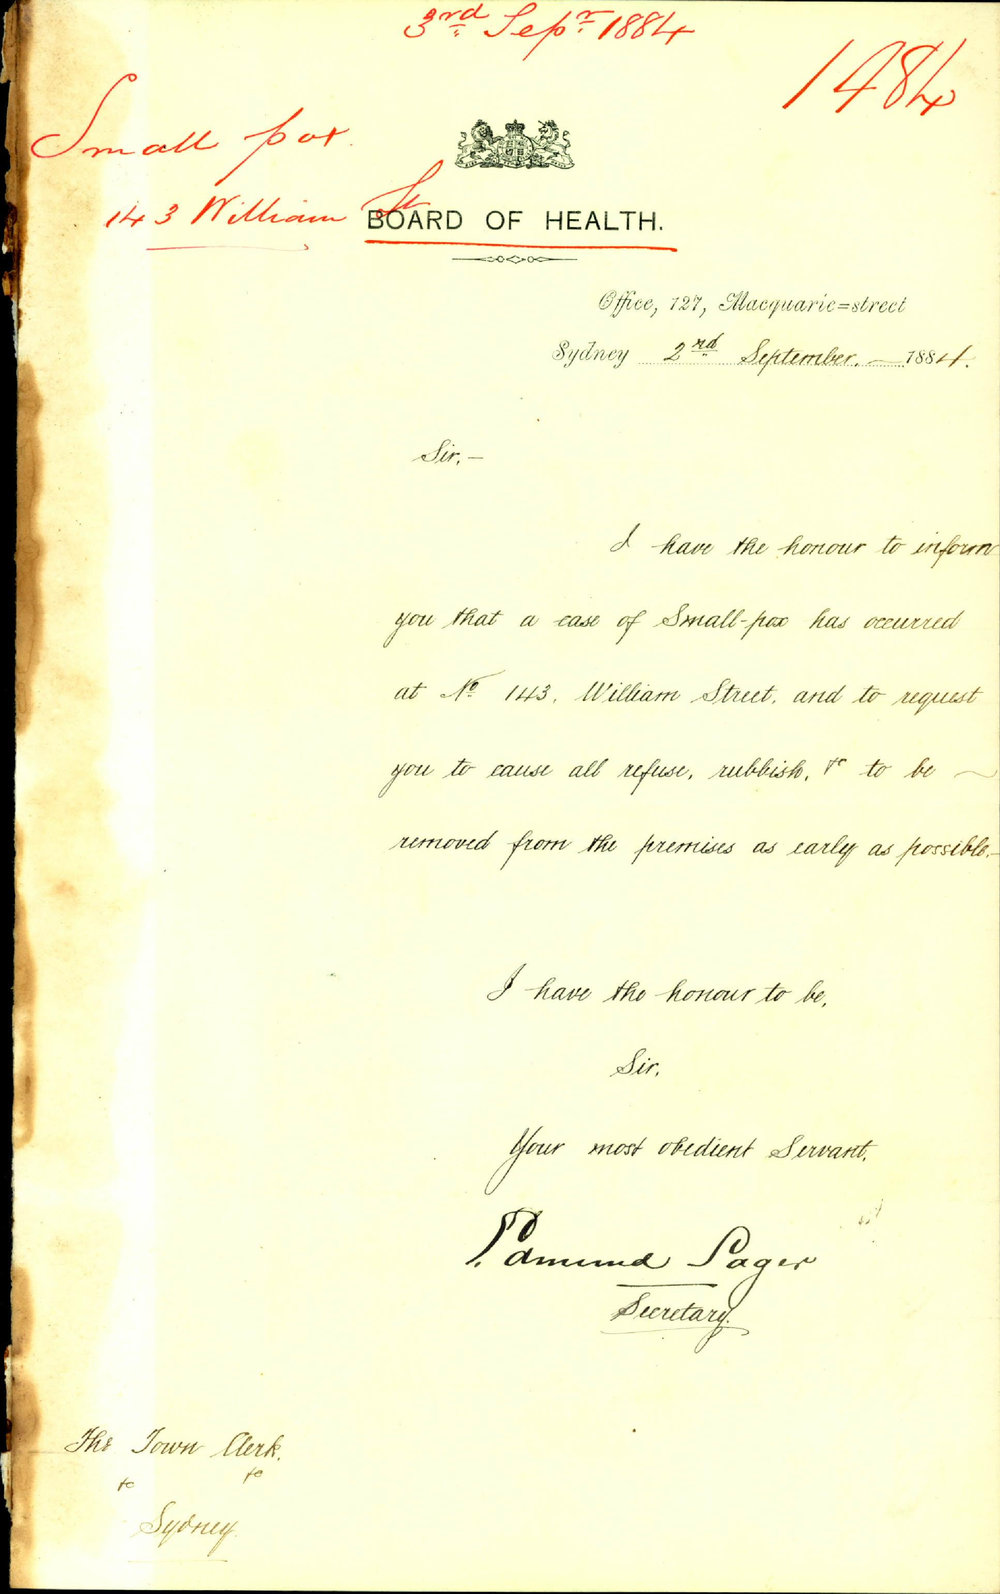 3rd Sepr 1884
1484
Small pox.
143 William St
BOARD OF HEALTH.
Office, 127, Macquarie=street
Sydney 2nd September. 1884.
Sir,—
I have the honour to inform
you that a case of Small-pox has occurred
at No 143, William Street, and to request
you to cause all refuse, rubbish, &c to be
removed from the premises as early as possible.—
I have the honour to be,
Sir,
Your most obedient Servant,
Edmund Sager
Secretary.
The Town Clerk,
&c &c
Sydney.